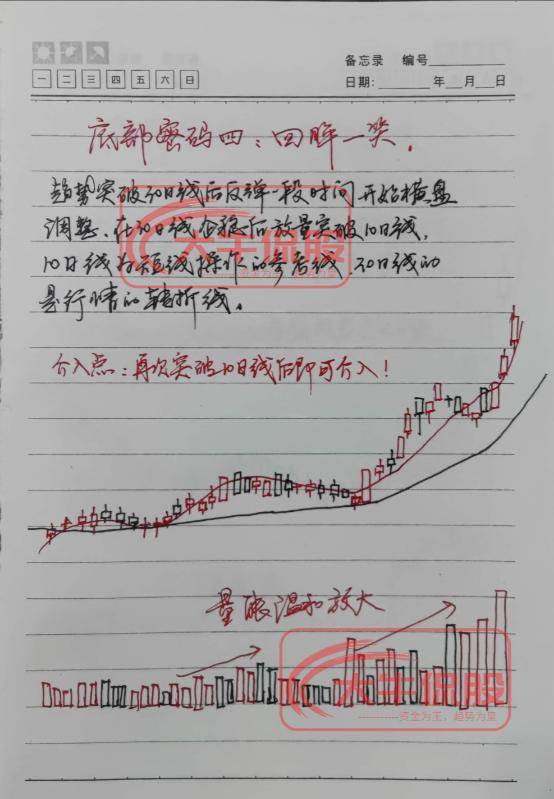 备忘录 编号
一 二 三 四 五 六 日
日期: 年 月 日
底部密码四:回眸一笑.
趋势突破30日线后反弹一段时间开始横盘
调整、在30日线企稳后放量突破10日线.
10日线为短线操作的参考线.30日线的
是行情的转折线.
介入点:再次突破10日线后即可介入!
量能温和放大
大牛侃股
资金为王,趋势为皇
大牛侃股
资金为王,趋势为皇